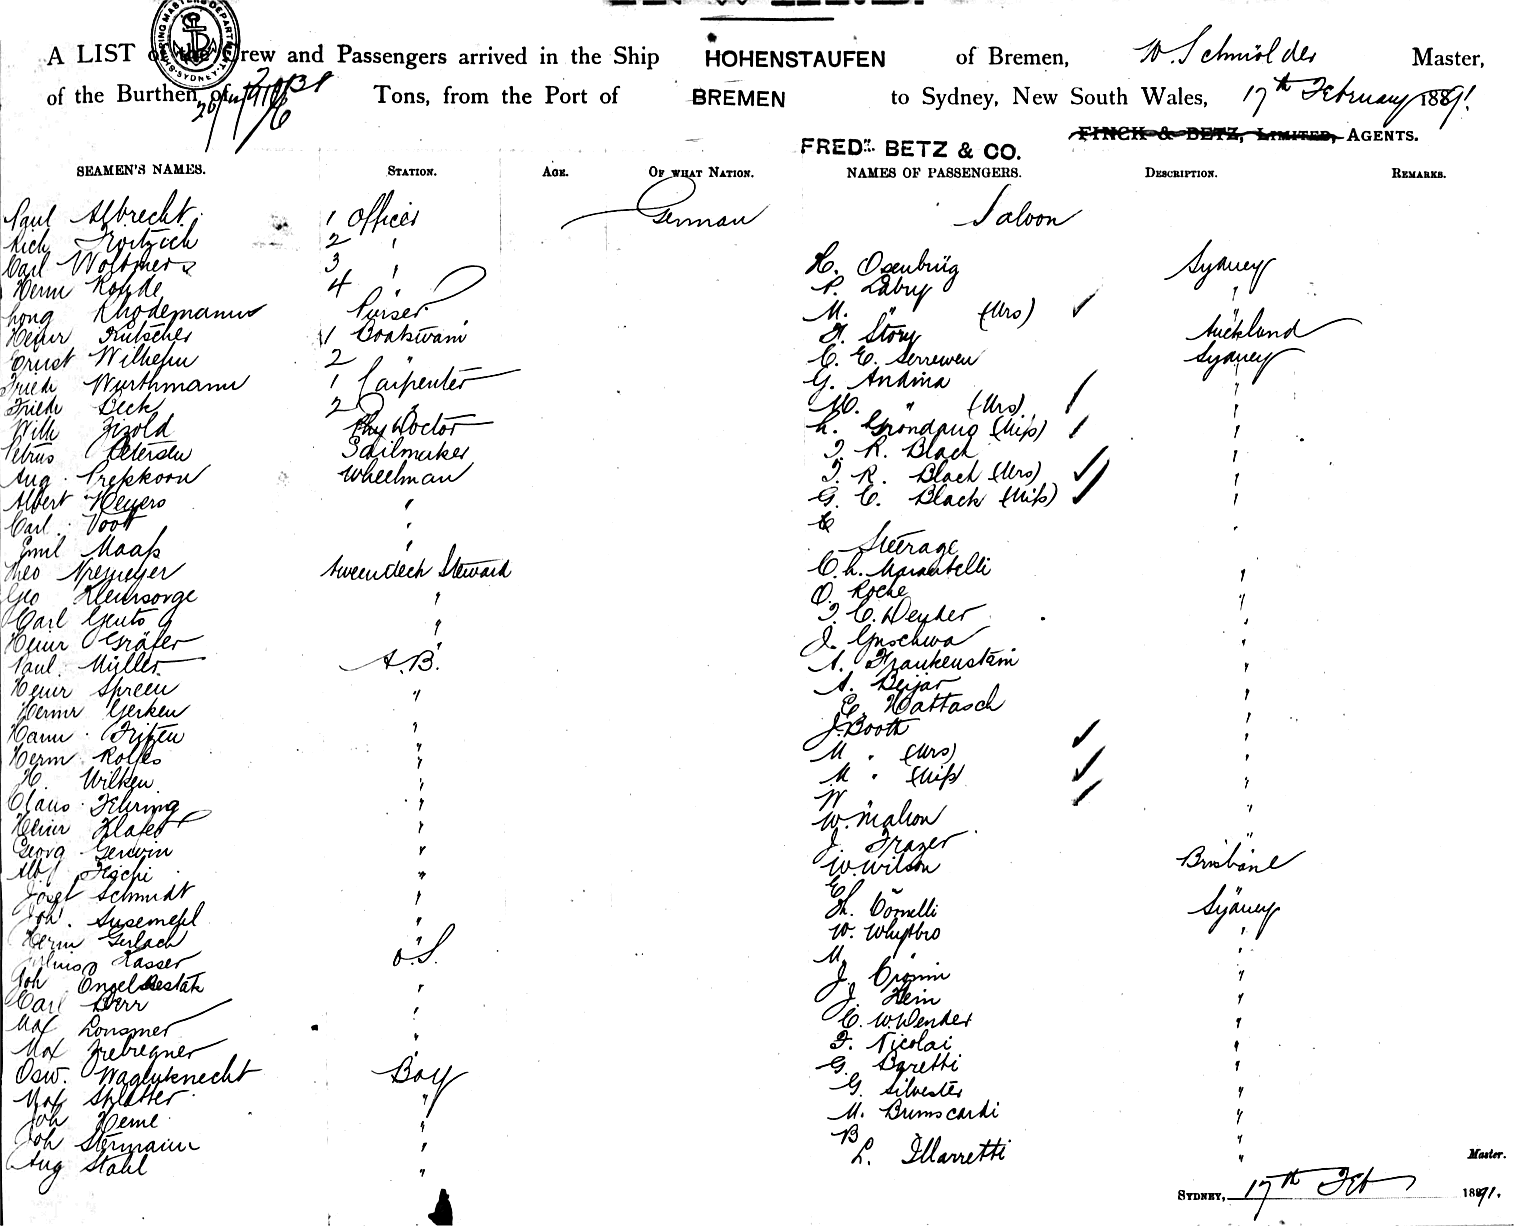 A LIST of the Crew and Passengers arrived in the Ship HOHENSTAUFEN of Bremen, W. Schmölder Master,
of the Burthen of Tons, from the Port of BREMEN to Sydney, New South Wales, 17th February 1891.
FINCK & BETZ, LIMITED, AGENTS.
FREDK. BETZ & CO.
SEAMEN'S NAMES. STATION. AGE. OF WHAT NATION. NAMES OF PASSENGERS. DESCRIPTION. REMARKS.
Paul Albrecht 1 Officer German Saloon
Rich 2 "
Carl Woltmers 3 " H. Osenbrüg Sydney
Herm Rohde 4 " P. Labry "
Long Rhodemann Purser M. " (Mrs) "
Heinr Kutscher 1 Boatswain F. Story Auckland
Ernst Wilhelm 2 " C. E. Serrewen Sydney
Friedr Wurthmann 1 Carpenter G. Andina "
Friedr Beck 2 " M. " (Mrs) "
Wilh Zizold Phy Doctor L. (Miss) "
Petrus Petersen Sailmaker T. R. Black "
Aug. Prekkorn Wheelman T. R. Black (Mrs) "
Albert Meyers " G. C. Black (Miss) "
Carl Voott " C "
Emil Maass " Steerage
Theo Niemeyer tweendeck Steward C. L. Marantelli "
Geo Kleinsorge " O. Roche "
Carl Gents " T. C. Weyher "
Heinr Gräfer J. Guschwa "
Paul Müller A.B. A. Frankenstein "
Heinr Spreen " A. Beijar "
Hermr Gerken E. Hattasch "
Hann. Fitzen " J. Booth "
Herm Rolfes " M " (Mrs) "
H. Wilken " M " (Miss) "
Claus Fehring " W "
Heinr Klafet " W. Mahon
Georg Gerwin " J. Frazer "
W. Wilson Brisbane
Josef Schmidt " E
Joh. Susemehl " Th. Comelli Sydney
Herm Gerlach " W. Whybro "
Julius Kasser O.S. M. "
Joh " J. Cronin "
Carl Derr " J. Hein "
Max Lonsmer " C. W. Wender "
Max Trebregner " F. Nicolai "
Osw. Wagenknecht Boy G. Baretti "
Max Splatter " G. Silvester "
Joh Heme " M. Brunscardi "
Joh Stermann " B "
Aug Stahl " L. Illarretti "
Master.
SYDNEY, 17th Feb 1891.